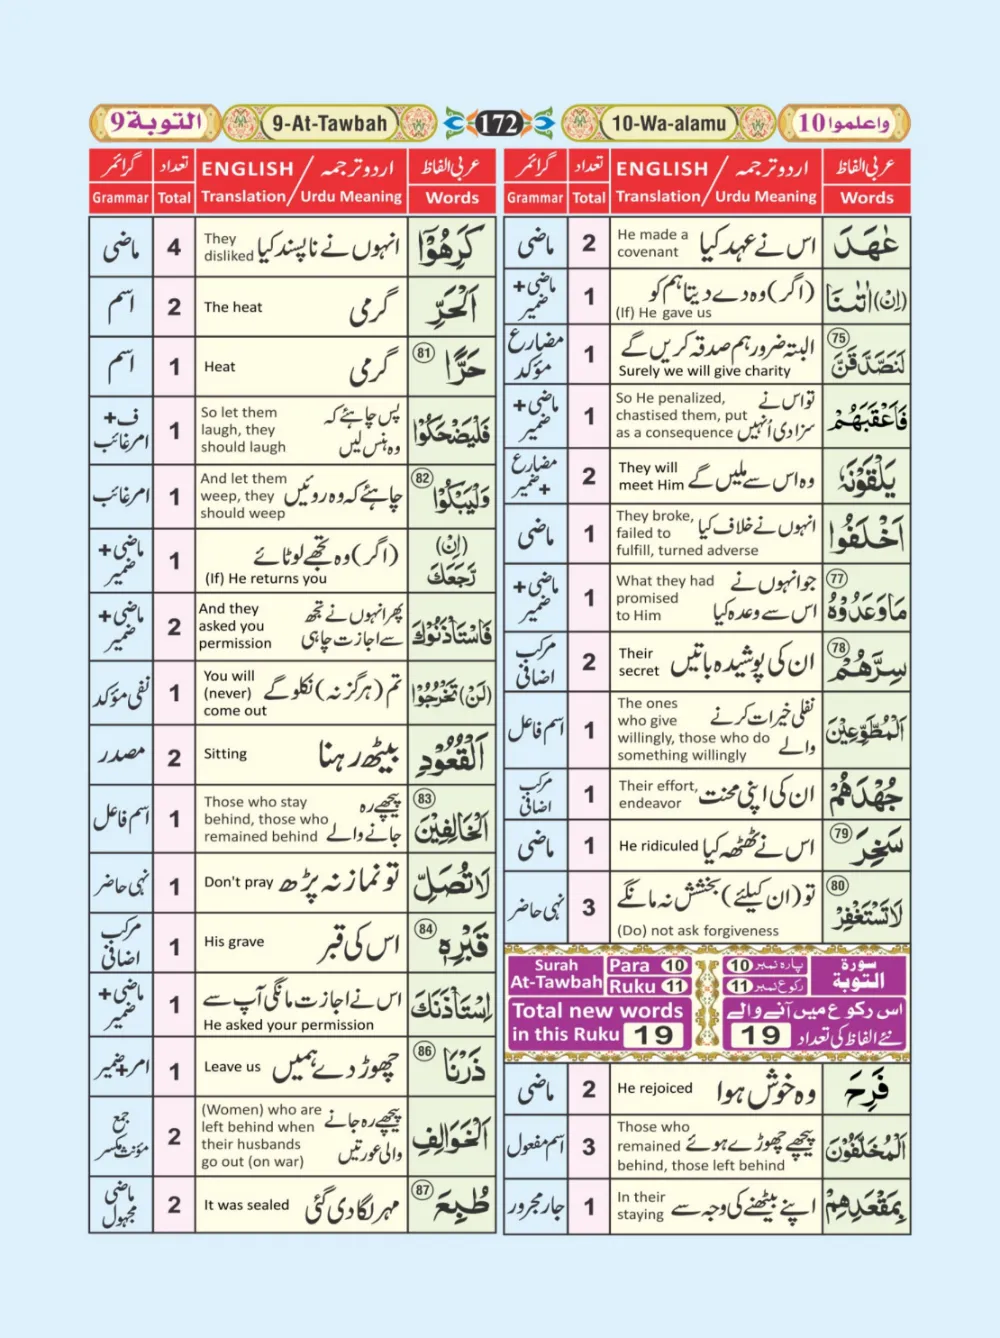 التوبة 9
9-At-Tawbah
172
10-Wa-alamu
واعلموا 10
عربی الفاظ اردو ترجمہ / ENGLISH تعداد گرائمر
Words Urdu Meaning / Translation Total Grammar
عٰهَدَ اس نے عہد کیا He made a covenant 2 ماضی
(اِنْ) اٰتٰىنَا (اگر) وہ دے دیتا ہم کو (If) He gave us 1 ماضی + ضمیر
لَنَصَّدَّقَنَّ 75 البتہ ضرور ہم صدقہ کریں گے Surely we will give charity 1 مضارع مؤکد
فَاَعْقَبَهُمْ تو اس نے سزا دی اُنہیں So He penalized, chastised them, put as a consequence 1 ماضی + ضمیر
يَلْقَوْنَهٗ وہ اس سے ملیں گے They will meet Him 2 مضارع + ضمیر
اَخْلَفُوا انہوں نے خلاف کیا They broke, failed to fulfill, turned adverse 1 ماضی
مَا وَعَدُوْهُ 77 جو انہوں نے اس سے وعدہ کیا What they had promised to Him 1 ماضی + ضمیر
سِرَّهُمْ 78 ان کی پوشیدہ باتیں Their secret 2 مرکب اضافی
اَلْمُطَّوِّعِيْنَ نفلی خیرات کرنے والے The ones who give willingly, those who do something willingly 1 اسم فاعل
جُهْدَهُمْ ان کی اپنی محنت Their effort, endeavor 1 مرکب اضافی
سَخِرَ 79 اس نے ٹھٹھہ کیا He ridiculed 1 ماضی
لَا تَسْتَغْفِرْ 80 تو (ان کیلئے) بخشش نہ مانگے (Do) not ask forgiveness 3 نہی حاضر
Surah At-Tawbah Para 10 Ruku 11
سورة التوبة پارہ نمبر 10 رکوع نمبر 11
Total new words in this Ruku 19
اس رکوع میں آنے والے نئے الفاظ کی تعداد 19
فَرِحَ وہ خوش ہوا He rejoiced 2 ماضی
اَلْمُخَلَّفُوْنَ پیچھے چھوڑے ہوئے Those who remained behind, those left behind 3 اسم مفعول
بِمَقْعَدِهِمْ اپنے بیٹھنے کی وجہ سے In their staying 1 جار مجرور
عربی الفاظ اردو ترجمہ / ENGLISH تعداد گرائمر
Words Urdu Meaning / Translation Total Grammar
كَرِهُوْٓا انہوں نے ناپسند کیا They disliked 4 ماضی
اَلْحَرِّ گرمی The heat 2 اسم
حَرًّا 81 گرمی Heat 1 اسم
فَلْيَضْحَكُوْا پس چاہئے کہ وہ ہنس لیں So let them laugh, they should laugh 1 ف + امر غائب
وَلْيَبْكُوْا 82 چاہئے کہ وہ روئیں And let them weep, they should weep 1 امر غائب
(اِنْ) رَّجَعَكَ (اگر) وہ تجھے لوٹائے (If) He returns you 1 ماضی + ضمیر
فَاسْتَاْذَنُوْكَ پھر انہوں نے تجھ سے اجازت چاہی And they asked you permission 2 ماضی + ضمیر
(لَنْ) تَخْرُجُوْا تم (ہرگز نہ) نکلو گے You will (never) come out 1 نفی مؤکد
اَلْقُعُوْدِ بیٹھ رہنا Sitting 2 مصدر
اَلْخَالِفِيْنَ 83 پیچھے رہ جانے والے Those who stay behind, those who remained behind 1 اسم فاعل
لَا تُصَلِّ تو نماز نہ پڑھ Don't pray 1 نہی حاضر
قَبْرِهٖ 84 اس کی قبر His grave 1 مرکب اضافی
اِسْتَاْذَنَكَ اس نے اجازت مانگی آپ سے He asked your permission 1 ماضی + ضمیر
ذَرْنَا 86 چھوڑ دے ہمیں Leave us 1 امر + ضمیر
اَلْخَوَالِفِ پیچھے رہ جانے والی عورتیں (Women) who are left behind when their husbands go out (on war) 2 جمع مؤنث مکسر
طُبِعَ 87 مہر لگا دی گئی It was sealed 2 ماضی مجہول